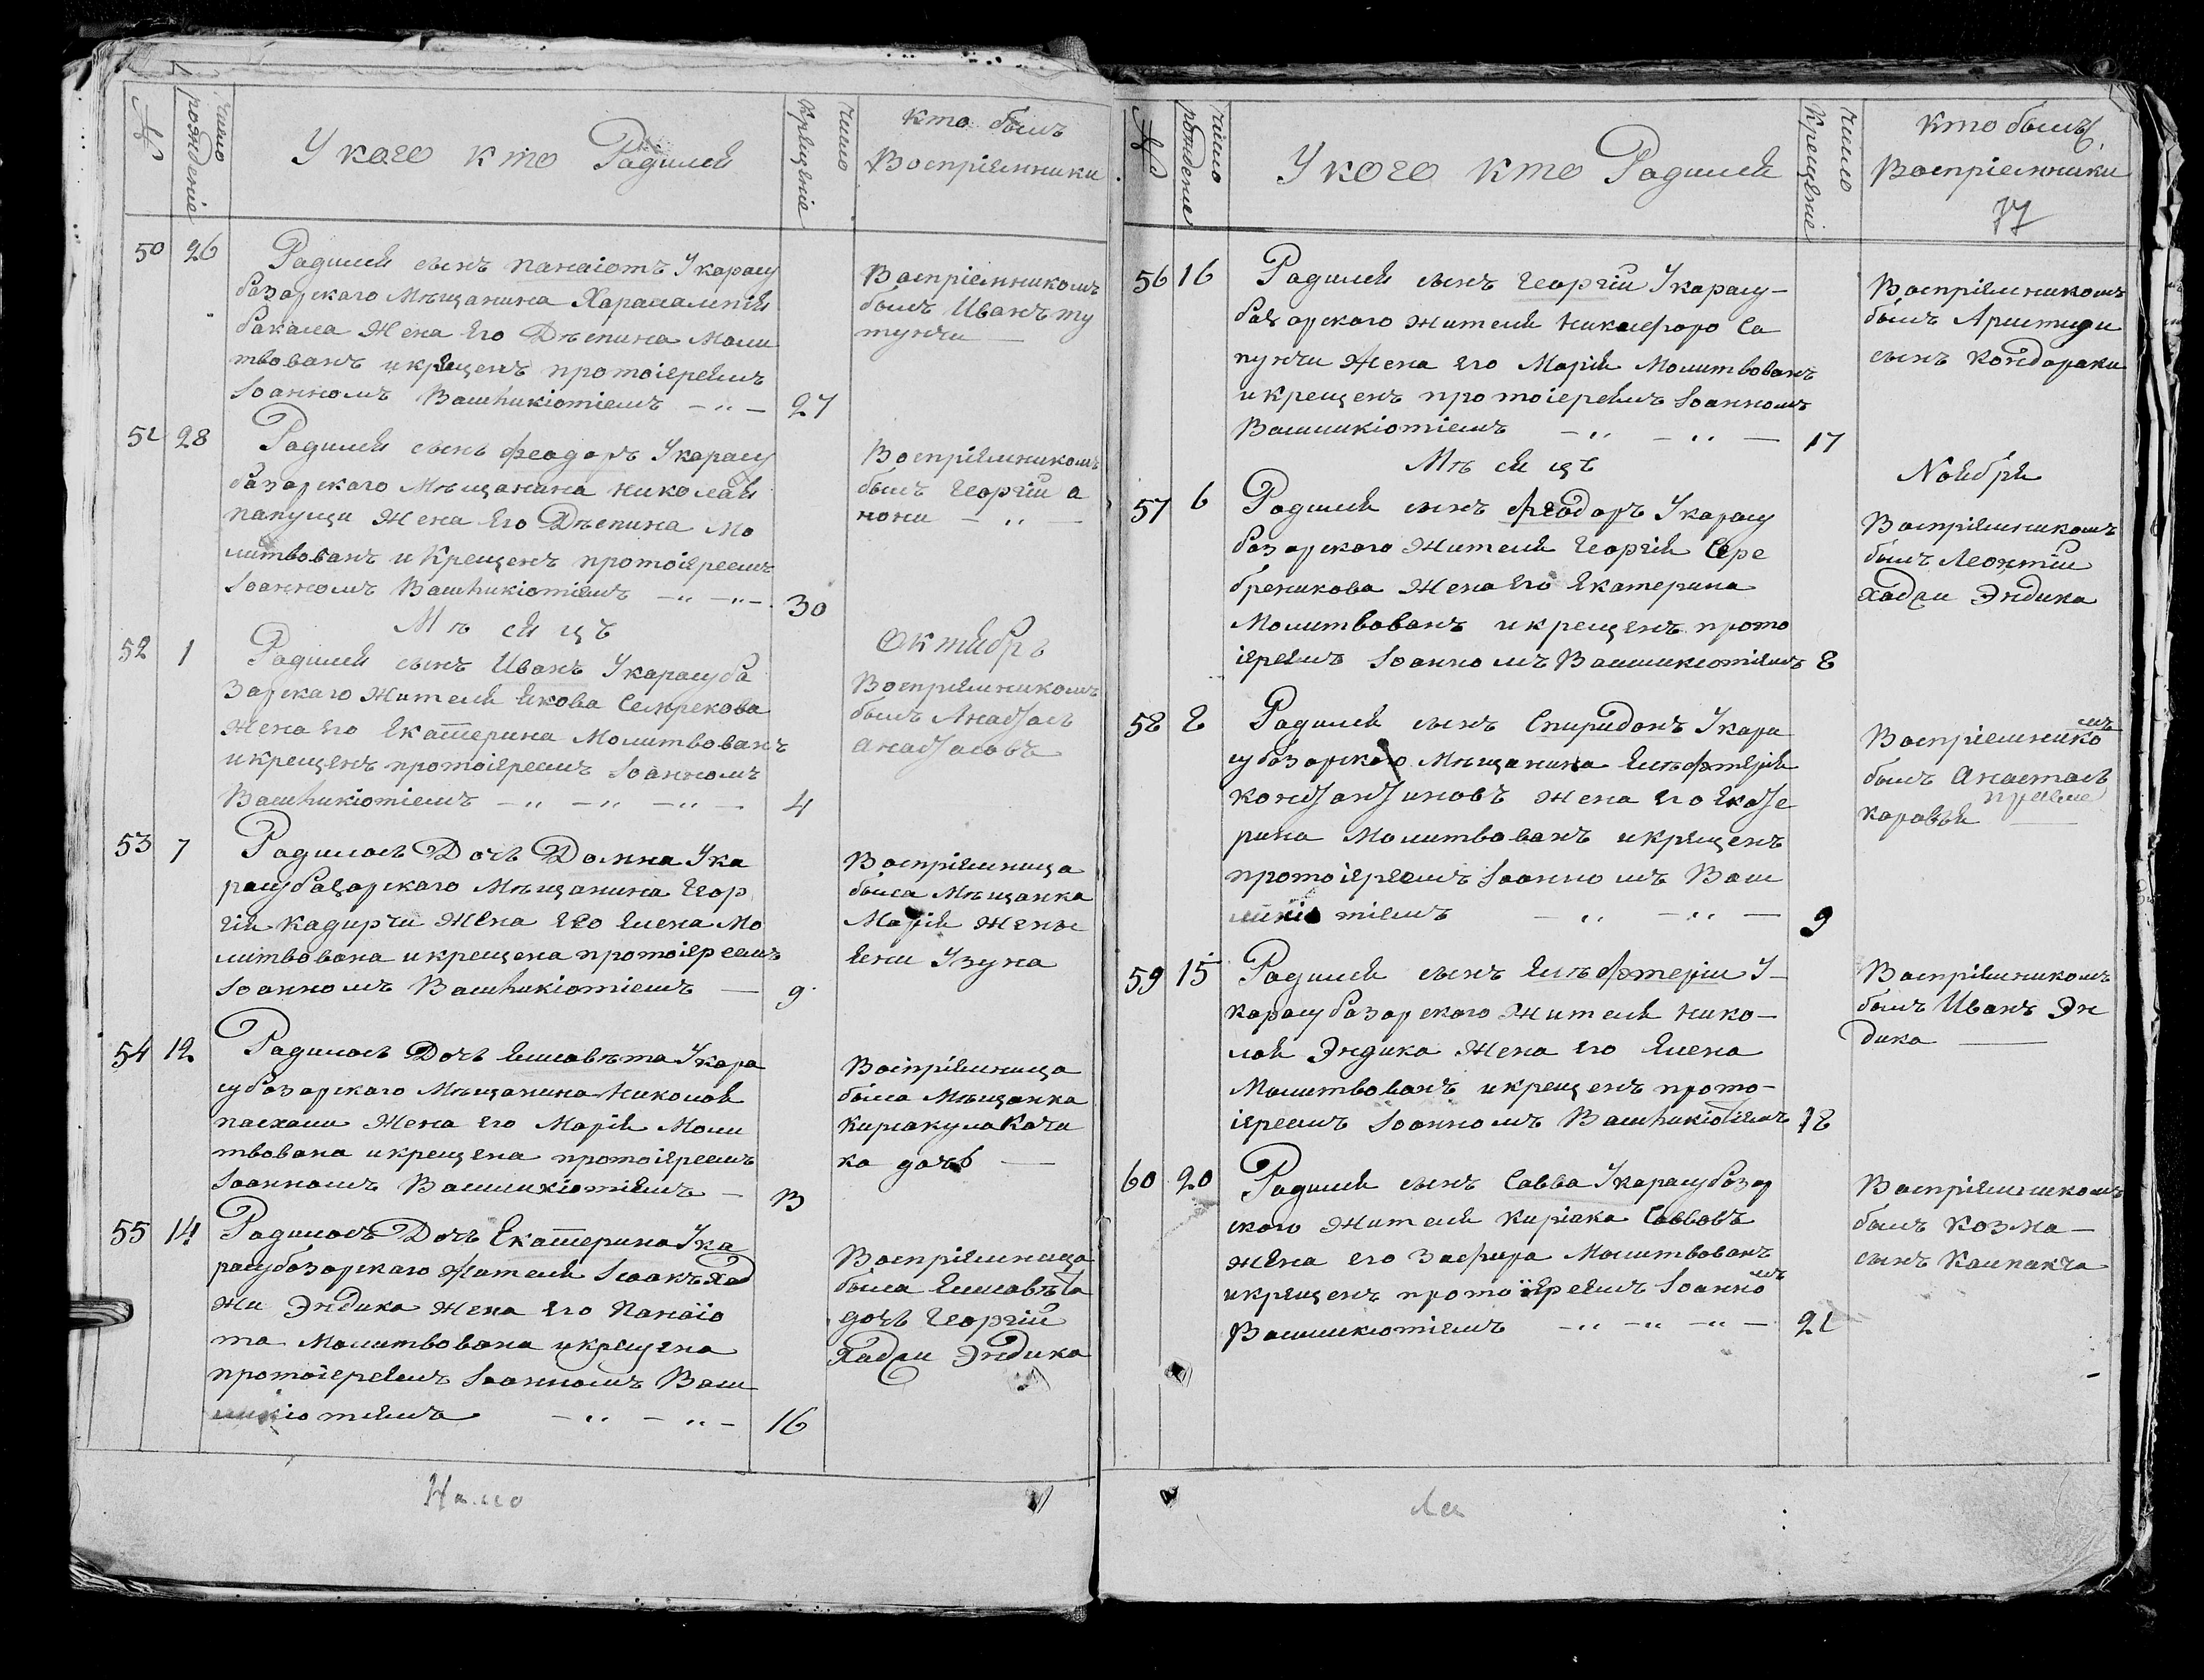 №
число рождение
У кого кто Радился
число Крещенiе
кто былъ
Воспрiемники
50 26 Радился сынъ панаiотъ Укарасу
базарскаго Мѣщанина Харалампiя
бакала Жена Его Дѣспина Моли
твованъ икрещенъ протоiереемъ
Iоанномъ Вашhикiотiемъ 27
Воспрiемникомъ
былъ Иванъ ту
тунчи
51 28 Радился сынъ феодоръ Укарасу
базарскаго Мѣщанина николая
папущи Жена Его Дѣспина Мо
литвованъ и Крещенъ протоiереемъ
Iоанномъ Вашhикiотiемъ 30
Воспрiемникомъ
былъ Георгiй а
нони
Мѣсяцъ Октябрь
52 1 Радился сынъ Иванъ Укарасуба
Зарскаго Жителя Якова
Жена Его Екатерина Молитвованъ
икрещенъ протоiереемъ Iоанномъ
Вашhикiотiемъ 4
Воспрiемникомъ
былъ
53 7 Радилась Дочь Домна Ука
расубазарскаго Мѣщанина Геор
гiя Кадирчи Жена Его Елена Мо
литвована икрещена протоiереемъ
Iоанномъ Вашhикiотiемъ 9
Воспрiемница
была Мѣщанка
Марiя Жены
Яни Узуна
54 12 Радилась Дочь Елисавѣта Укара
субазарскаго Мѣщанина Николая
пасхали Жена Его Марiя Моли
твована икрещена протоiереемъ
Iоанномъ Вашшикiотiемъ 13
Воспрiемница
была Мѣщанка
Кача
ка дочь
55 14 Радилась Дочь Екатерина Ука
расубазарскаго Жителя Исаакъ Хад
жи Эндика Жена Его Панаiо
та Молитвована икрещена
протоiереемъ Iоанномъ Ваш
шикiотiемъ 16
Воспрiемница
была Елисавѣта
дочь Георгiй
Хаджи Эндика
№
число рождение
У кого кто Радился
число Крещенiе
Кто былъ
Воспрiемники
77
56 16 Радился сынъ Георгiй Укарасу-
базарскаго Жителя Никифоро Са
пунчи Жена Его Марiя Молитвованъ
икрещенъ протоiереемъ Iоанномъ
Вашшикiотiемъ 17
Воспрiемникомъ
былъ Аристиди
сынъ Кондораки
Мѣсяцъ Ноября
57 6 Радился сынъ феодоръ Укарасу
базарскаго Жителя Георгiя Сере
бреникова Жена Его Екатерина
Молитвованъ икрещенъ прото
iереемъ Iоанномъ Вашшикiотiемъ 8
Воспрiемникомъ
былъ Леонтiй
Хаджи Эндика
58 8 Радился сынъ Спиридонъ Укара
субазарскаго Мѣщанина Елѣфтерiя
Константиновъ Жена Его Екате
рина Молитвованъ икрещенъ
протоiереемъ Iоанномъ Ваш
шикiотiемъ 9
Воспрiемникомъ
былъ Анастасъ
каравья
59 15 Радился сынъ Елѣфтерiй У-
карасубазарскаго Жителя Нико-
лая Эндика Жена Его Елена
Молитвованъ икрещенъ прото-
iереемъ Iоанномъ Вашhикiотiемъ 18
Воспрiемникомъ
былъ Иванъ Эн
дика
60 20 Радился сынъ Савва Укарасубазар
скаго Жителя Кирiака Саввовъ
Жена его Зафира Молитвованъ
икрещенъ протоiереемъ Iоанномъ
Вашшикiотiемъ 21
Воспрiемникомъ
былъ Козма-
сынъ Калпакча